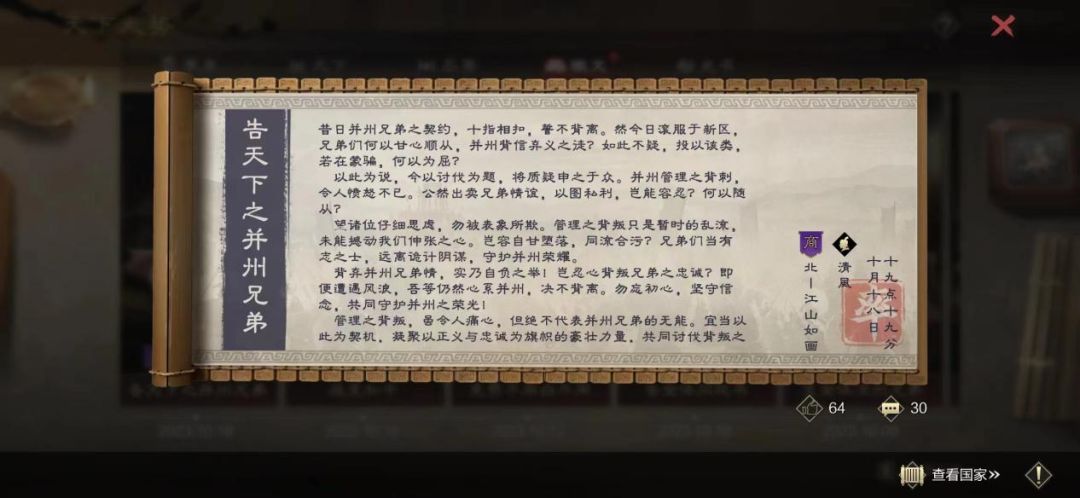 告天下之并州兄弟
昔日并州兄弟之契约，十指相扣，誓不背离。然今日滚服于新区，
兄弟们何以甘心顺从，并州背信弃义之徒？如此不疑，投以该类，
若在蒙骗，何以为屈？
以此为说，今以讨伐为题，将质疑申之于众。并州管理之背刺，
令人愤怒不已。公然出卖兄弟情谊，以图私利，岂能容忍？何以随
从？
望诸位仔细思虑，勿被表象所欺。管理之背叛只是暂时的乱流，
未能撼动我们伸张之心。岂容自甘堕落，同流合污？兄弟们当有
志之士，远离诡计阴谋，守护并州荣耀。
背弃并州兄弟情，实乃自负之举！岂忍心背叛兄弟之忠诚？即
便遭遇风浪，吾等仍然心系并州，决不背离。勿忘初心，坚守信
念，共同守护并州之荣光！
管理之背叛，虽令人痛心，但绝不代表并州兄弟的无能。宜当以
此为契机，凝聚以正义与忠诚为旗帜的豪壮力量，共同讨伐背叛之
商
北丨江山如画
清风
十月十八日
十九点十九分
64
30
查看国家»